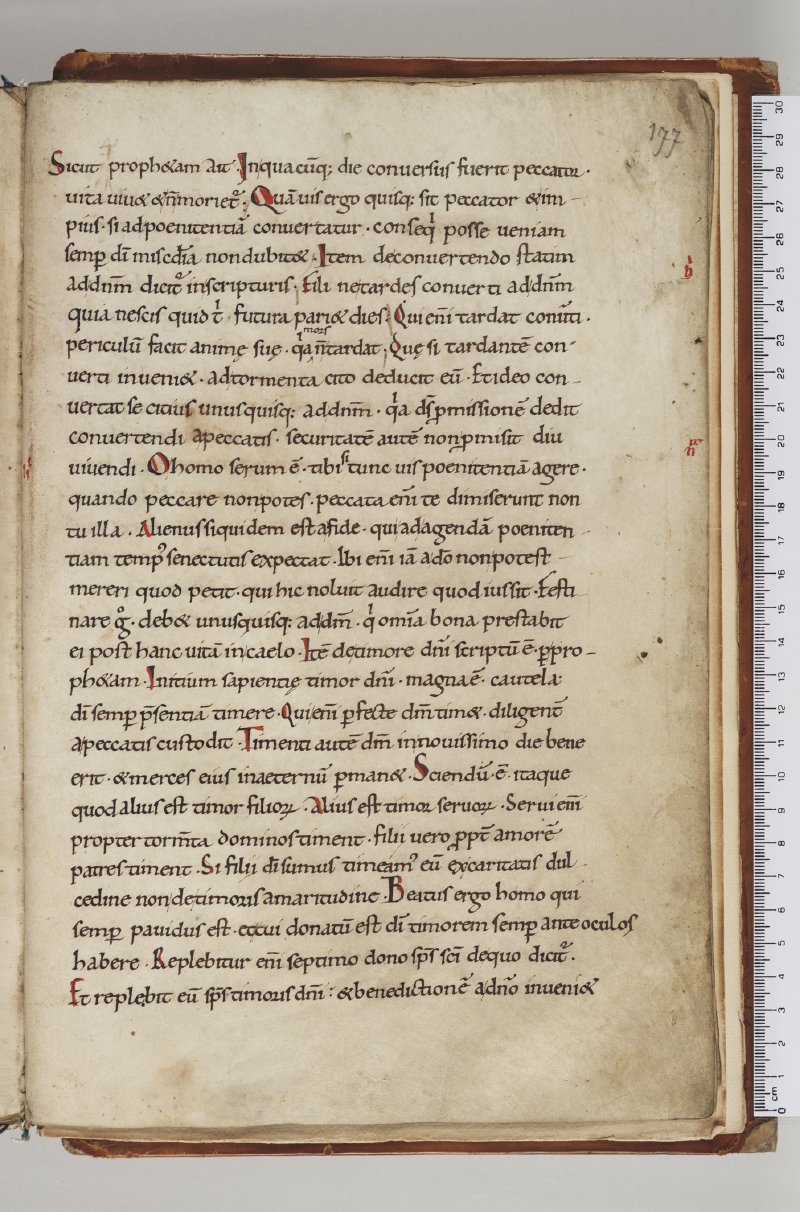 177
Sicut prophetam ait. In quacūq; die conversus fuerit peccator.
vita vivet & ñ moriet᷑. Quāvis ergo quisq; sit peccator & im-
pius. si ad poenitentiā convertatur. conseqͥ posse veniam
semp̱ dī misc̄diā non dubitet. Item de convertendo statim
ad dn̄m dicit᷑ in scripturis. Fili ne tardes converti ad dn̄m
quia nescis quid t̄ futura pariet dies. Qui eni tardat conv̄ti.
mors
periculū facit animę suę. qͥa ñ tardat. Quę si tardantē con-
verti invenit&. ad tormenta cito deducit eū. Et ideo con-
vertat se citius unusquisq; ad dn̄m. qͥa ds̄ p̱missionē dedit
convertendi a peccatis. securitatē autē non p̱misit diu
vivendi. O homo serum ē. tibi si tunc vis poenitentiā agere.
quando peccare non potes. peccata en̄i te dimiserunt non
tu illa. Alienus siquidem est a fide. qui ad agendā poeniten-
tiam tempꝰ senectutis expectat. Ibi en̄i iā a dō non potest-
mereri quod petit. qui hic noluit audire quod iussit. Festi-
nare g̊. debet unusquisq; ad dn̄m. qͥ omīa bona prestabit
ei post hanc vitā in caelo. Itē de timore dn̄i scriptū ē. p̱ pro-
phetam. Initium sapientię timor dn̄i. magna ē. cautela
dī semp̱ p̄sentiā timere. Qui en̄i p̱fecte dm̄ timet. diligent̄
a peccatis custodit. Timenti autē dm̄ in novissimo die bene
erit. & merces eius in aeternū p̱manet. Sciendū. ē. itaque
quod alius est timor filioꝝ. Alius est timor servoꝝ. Servi en̄i
propter torm̄ta dominos timent. filii vero ppt̄ amorē
patres timent. Si filii dī sumus timeamꝰ eū ex caritatis dul-
cedine non de timoris amaritudine. Beatus ergo homo qui
semp̱ pavidus est. et cui donatū est dī timorem semp̱ ante oculos
habere. Replebitur en̄i septimo dono sp̄s sc̄i de quo dicit᷑.
Et replebit eū sp̄s timoris dn̄i: & benedictionē a dn̄o inveniet